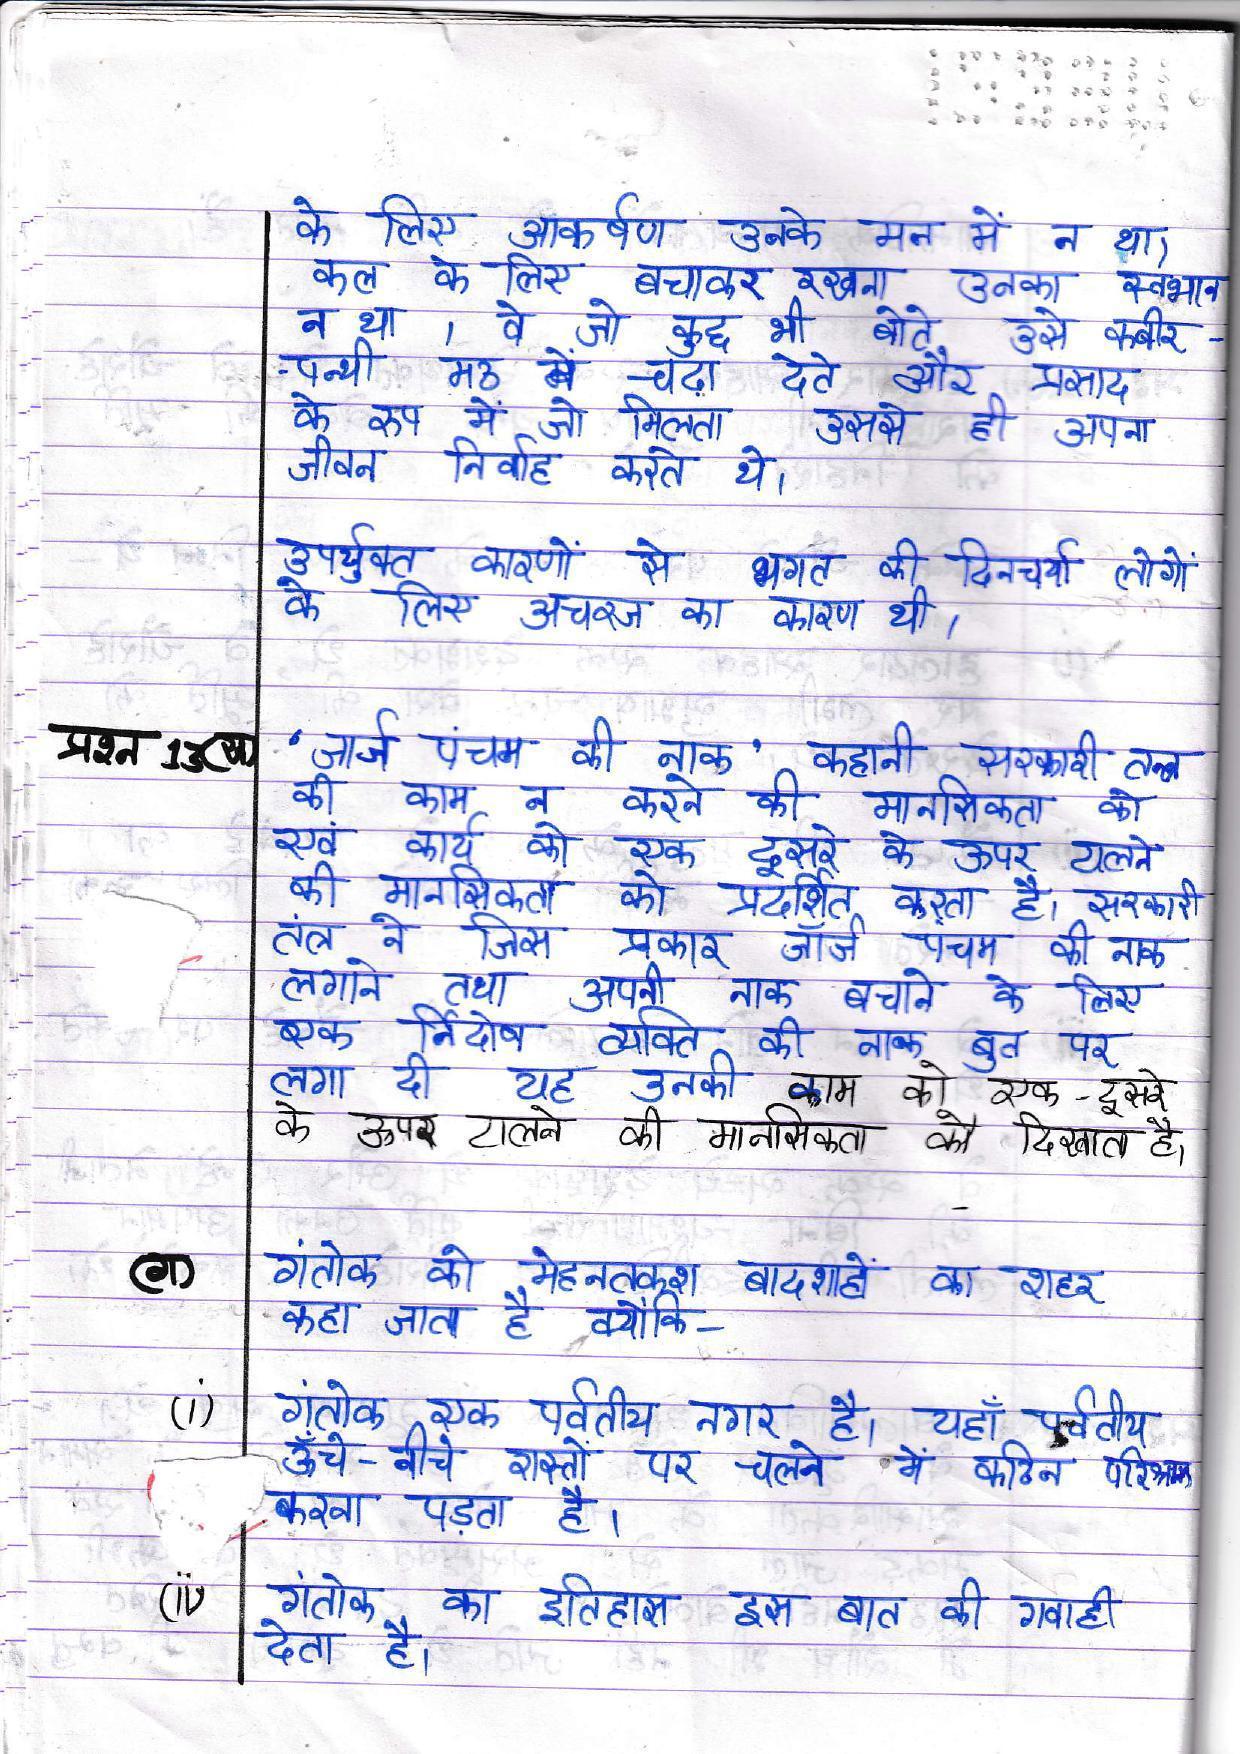 के लिए आकर्षण उनके मन में न था,
कल के लिए बचाकर रखना उनका स्वभाव
न था, वे जो कुछ भी बोते उसे कबीर-
-पन्थी मठ में चढ़ा देते और प्रसाद
के रुप में जो मिलता उससे ही अपना
जीवन निर्वाह करते थे।
उपर्युक्त कारणों से भगत की दिनचर्या लोगों
के लिए अचरज का कारण थी।
प्रश्न 13 'जार्ज पंचम की नाक' कहानी सरकारी तन्त्र
की काम न करने की मानसिकता को
एवं कार्य को एक दूसरे के ऊपर टालने
की मानसिकता को प्रदर्शित करता है। सरकारी
तंत्र ने जिस प्रकार जॉर्ज पंचम की नाक
लगाने तथा अपनी नाक बचाने के लिए
एक निर्दोष व्यक्ति की नाक बुत पर
लगा दी यह उनकी काम को एक-दूसरे
के ऊपर टालने की मानसिकता को दिखाता है।
(ग) गंतोक को मेहनतकश बादशाहों का शहर
कहा जाता है क्योंकि-
(i) गंतोक एक पर्वतीय नगर है। यहाँ पर्वतीय
ऊँचे-नीचे रास्तों पर चलने में कठिन परिश्रम
करना पड़ता है।
(ii) गंतोक का इतिहास इस बात की गवाही
देता है।